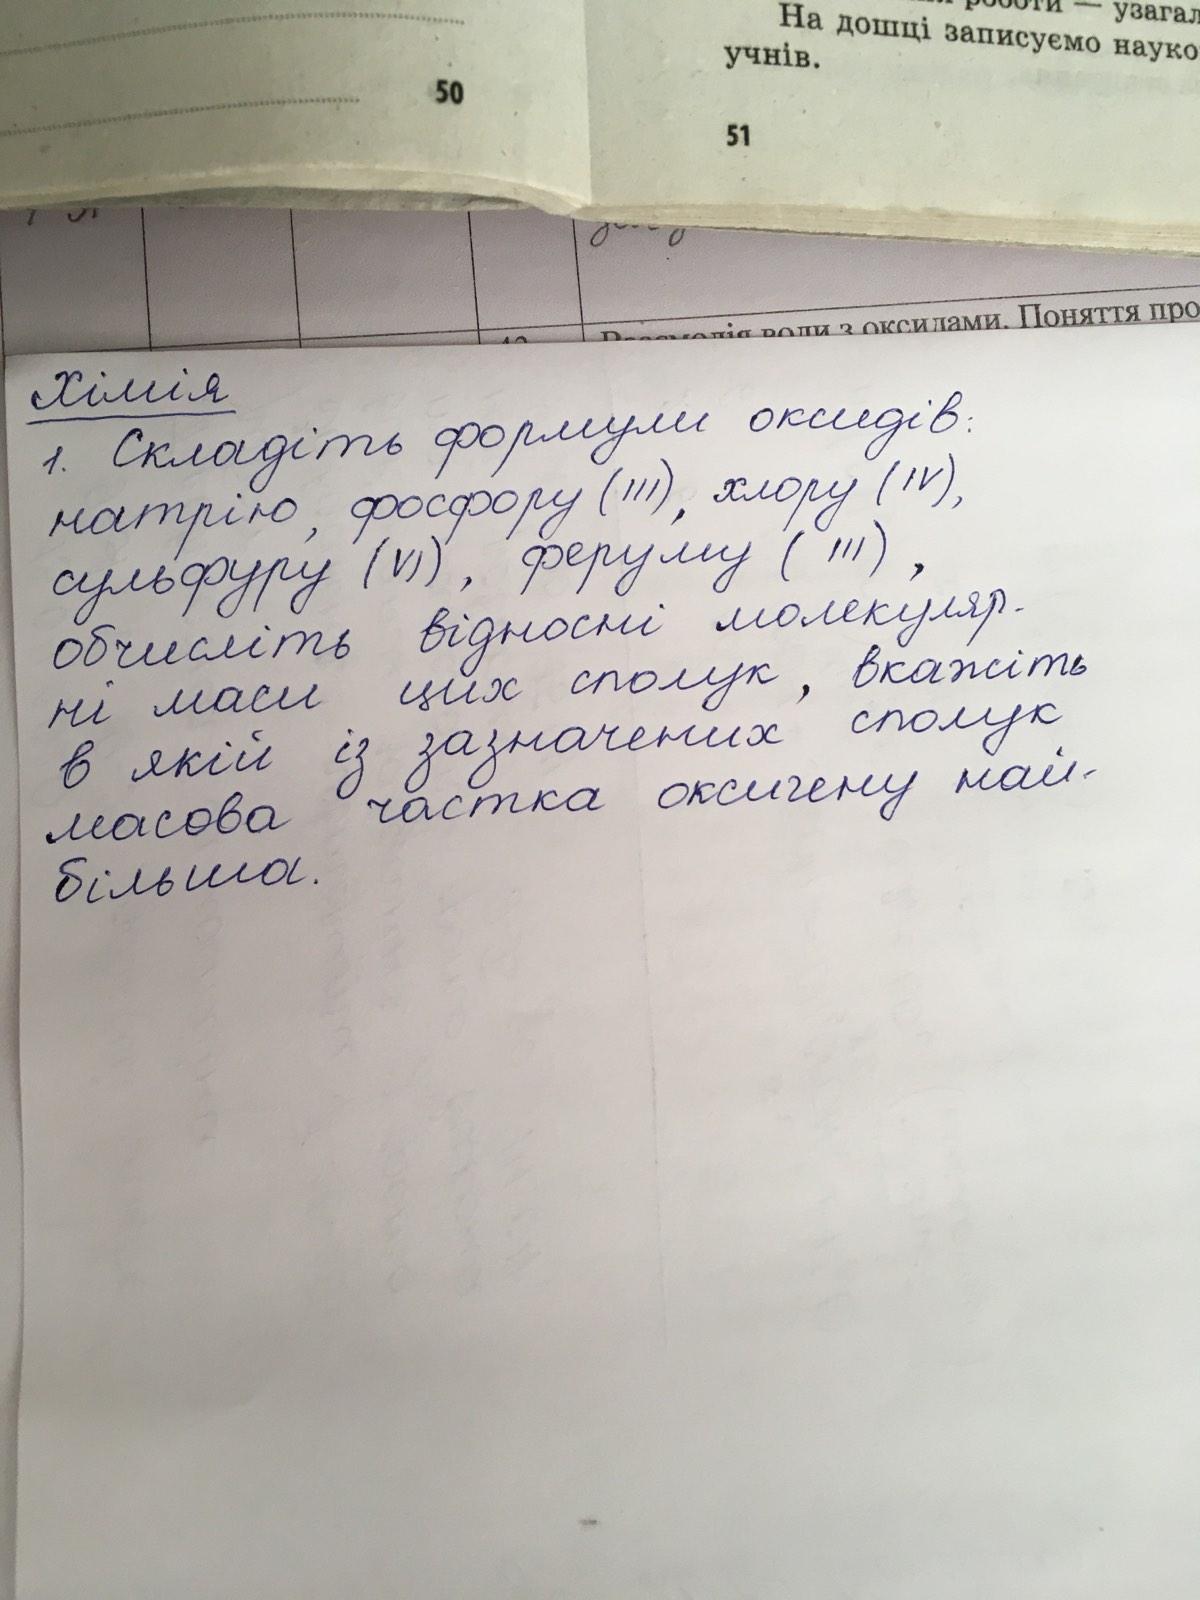 50
роботи — узагал
На дошці записуємо науко
учнів.
51
Взаємодія води з оксидами. Поняття про
Хімія
1. Складіть формули оксидів:
натрію, фосфору (III), хлору (IV),
сульфуру (VI), феруму (III),
обчисліть відносні молекуляр-
ні маси цих сполук, вкажіть
в якій із зазначених сполук
масова частка оксигену най-
більша.